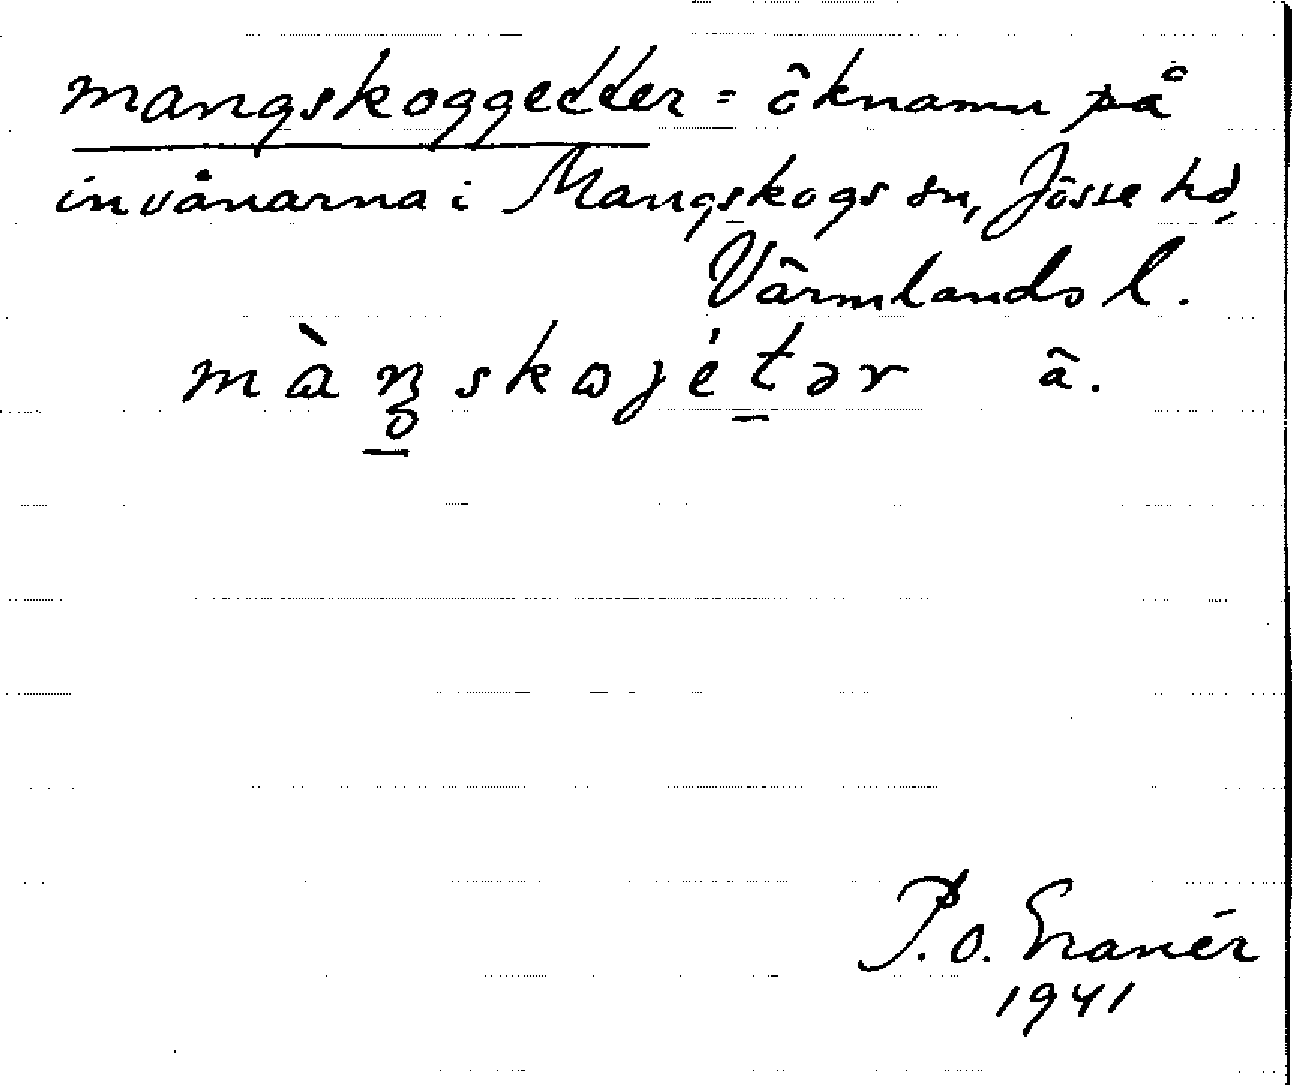 mangskoggetter = öknamn på
invånarna i Mangskogs sn, Jösse hd,
Värmlands l.
màŋskojétər ä.
P.O. Granér
1941